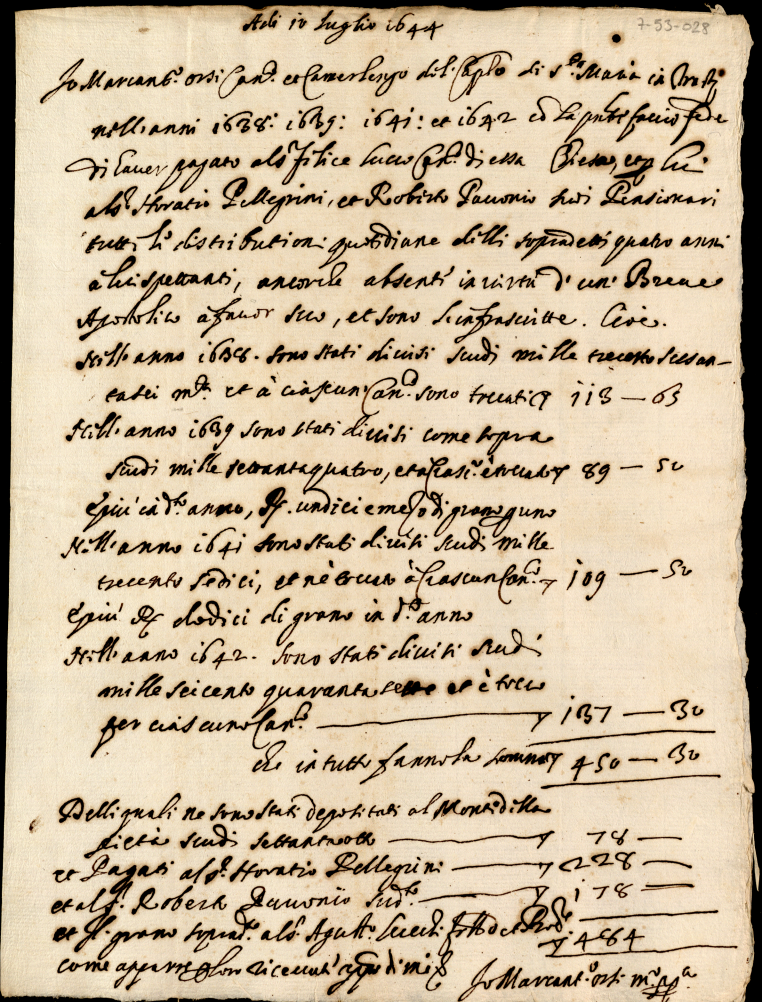 7-53-028
Adi 10 luglio 1644
Io Marcant.º orsi Can.º et Camerlengo del Caplo di s.ta Maria in
nelli anni 1638: 1639: 1641: et 1642 cō la pnte faccio fede
di haver pagato al s.r felice Can.co di essa Chiesa, et p lui
al s.r Horatio Pellegrini, et Roberto Pavonio suoi Pensionari
tutte le distributioni quotidiane delli sopradetti quatro anni
à lui spettanti, ancorche absenti in virtù d' un' Breve
Apostolico à favor suo, et sono le infrascritte. Cioè.
Nell'anno 1638. sono stati divisi scudi mille trecento sessan-
tasei m.ta et à ciascun Can.co sono toccati 113 — 65
Nell'anno 1639 sono stati divisi come sopra
scudi mille settantaquatro, et a Ciasc.º è toccato 89 — 50
e più in d.to anno, R. undici e mezo di grano
Nell'anno 1641 sono stati divisi scudi mille
trecento sedici, et n'è toccato à Ciascun Can.co 109 — 50
e più R. dodici di grano in d.to anno
Nell'anno 1642. sono stati divisi scudi
mille seicento quaranta sette et è tocco
per ciascuno Can.co 137 — 30
che in tutto fanno la somma 450 — 30
Delli quali ne sono stati depositati al Monte della
pietà scudi settantaotto 78 —
et Pagati al s.r Horatio Pellegrini 228 —
et al s.r Roberto Pavonio sud.to 178 —
et il grano soprad.to al s.r Agust.º 484
come appare p loro ricevute
Io Marcant.º orsi m.º pp.a